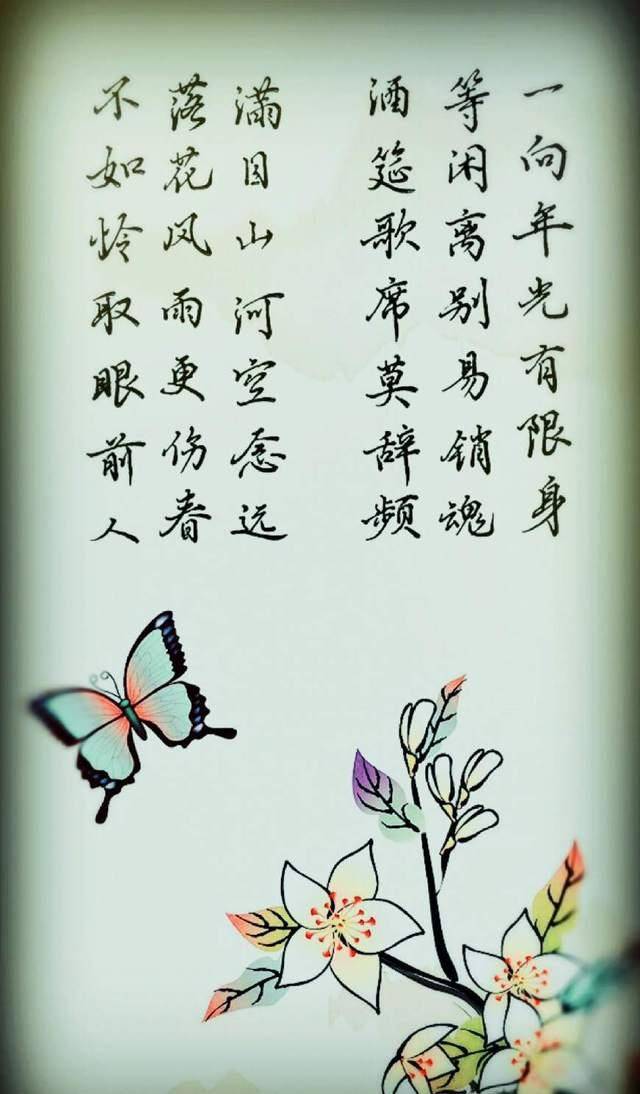 一向年光有限身
等闲离别易销魂
酒筵歌席莫辞频
满目山河空念远
落花风雨更伤春
不如怜取眼前人